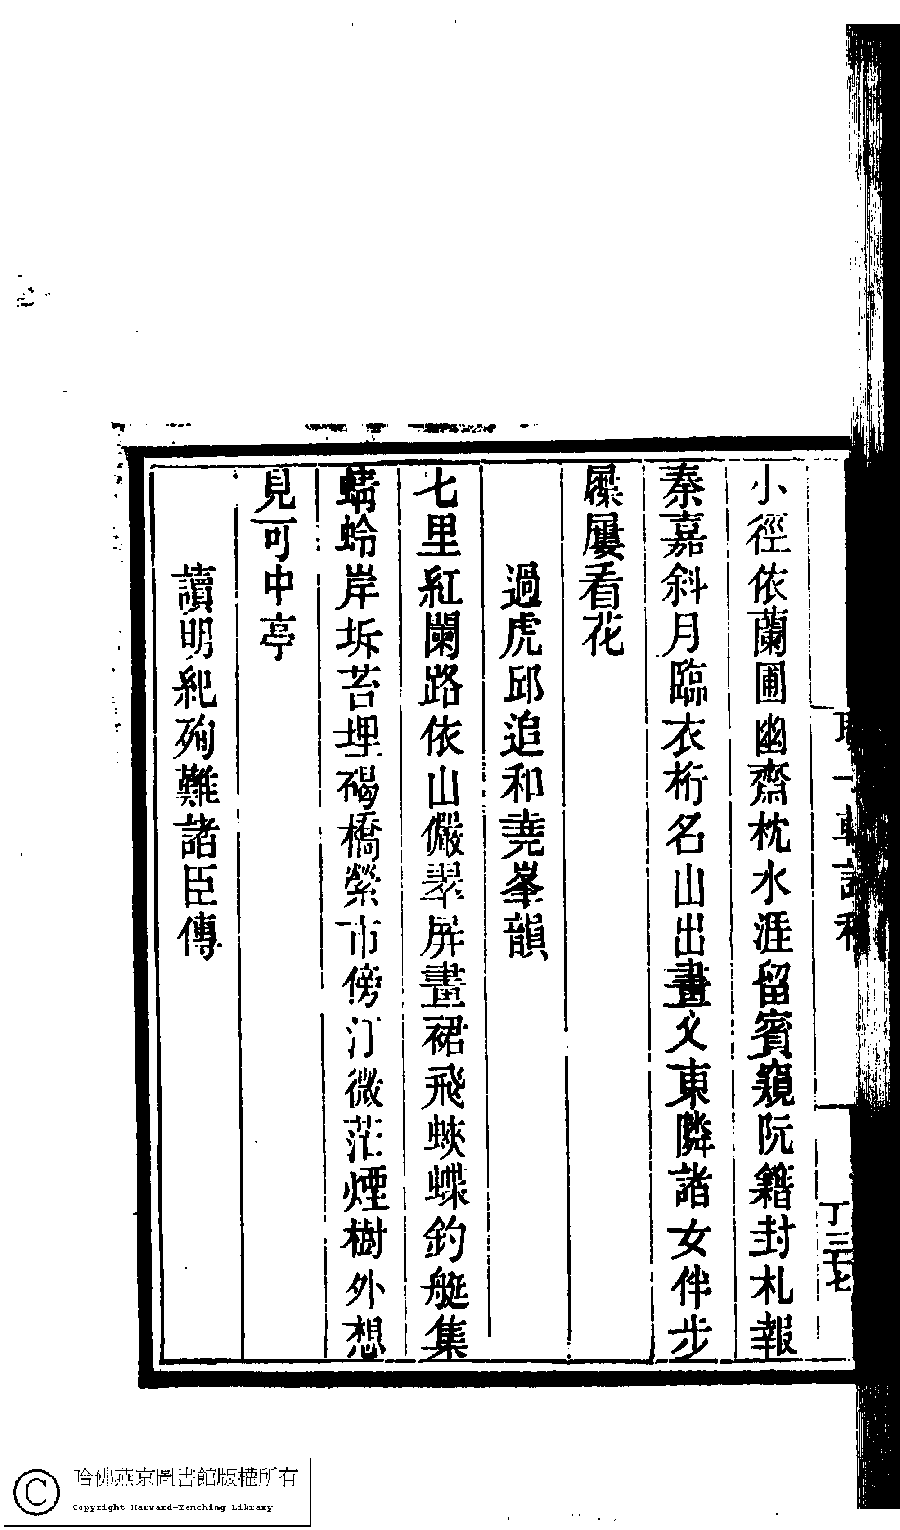 小徑依蘭圃幽齋枕水涯留賓窺阮籍封札報
秦嘉斜月臨衣桁名山出畫叉東隣諸女伴步
屧屢看花
過虎邱追和堯峯韻
七里紅闌路依山儼翠屏畫裙飛蛺蝶釣艇集
蜻蛉岸坼苔埋碣橋縈市傍汀微茫煙樹外想
見可中亭
讀明紀殉難諸臣傳
丁三七
哈佛燕京圖書館版權所有
Copyright Harvard-Yenching Library